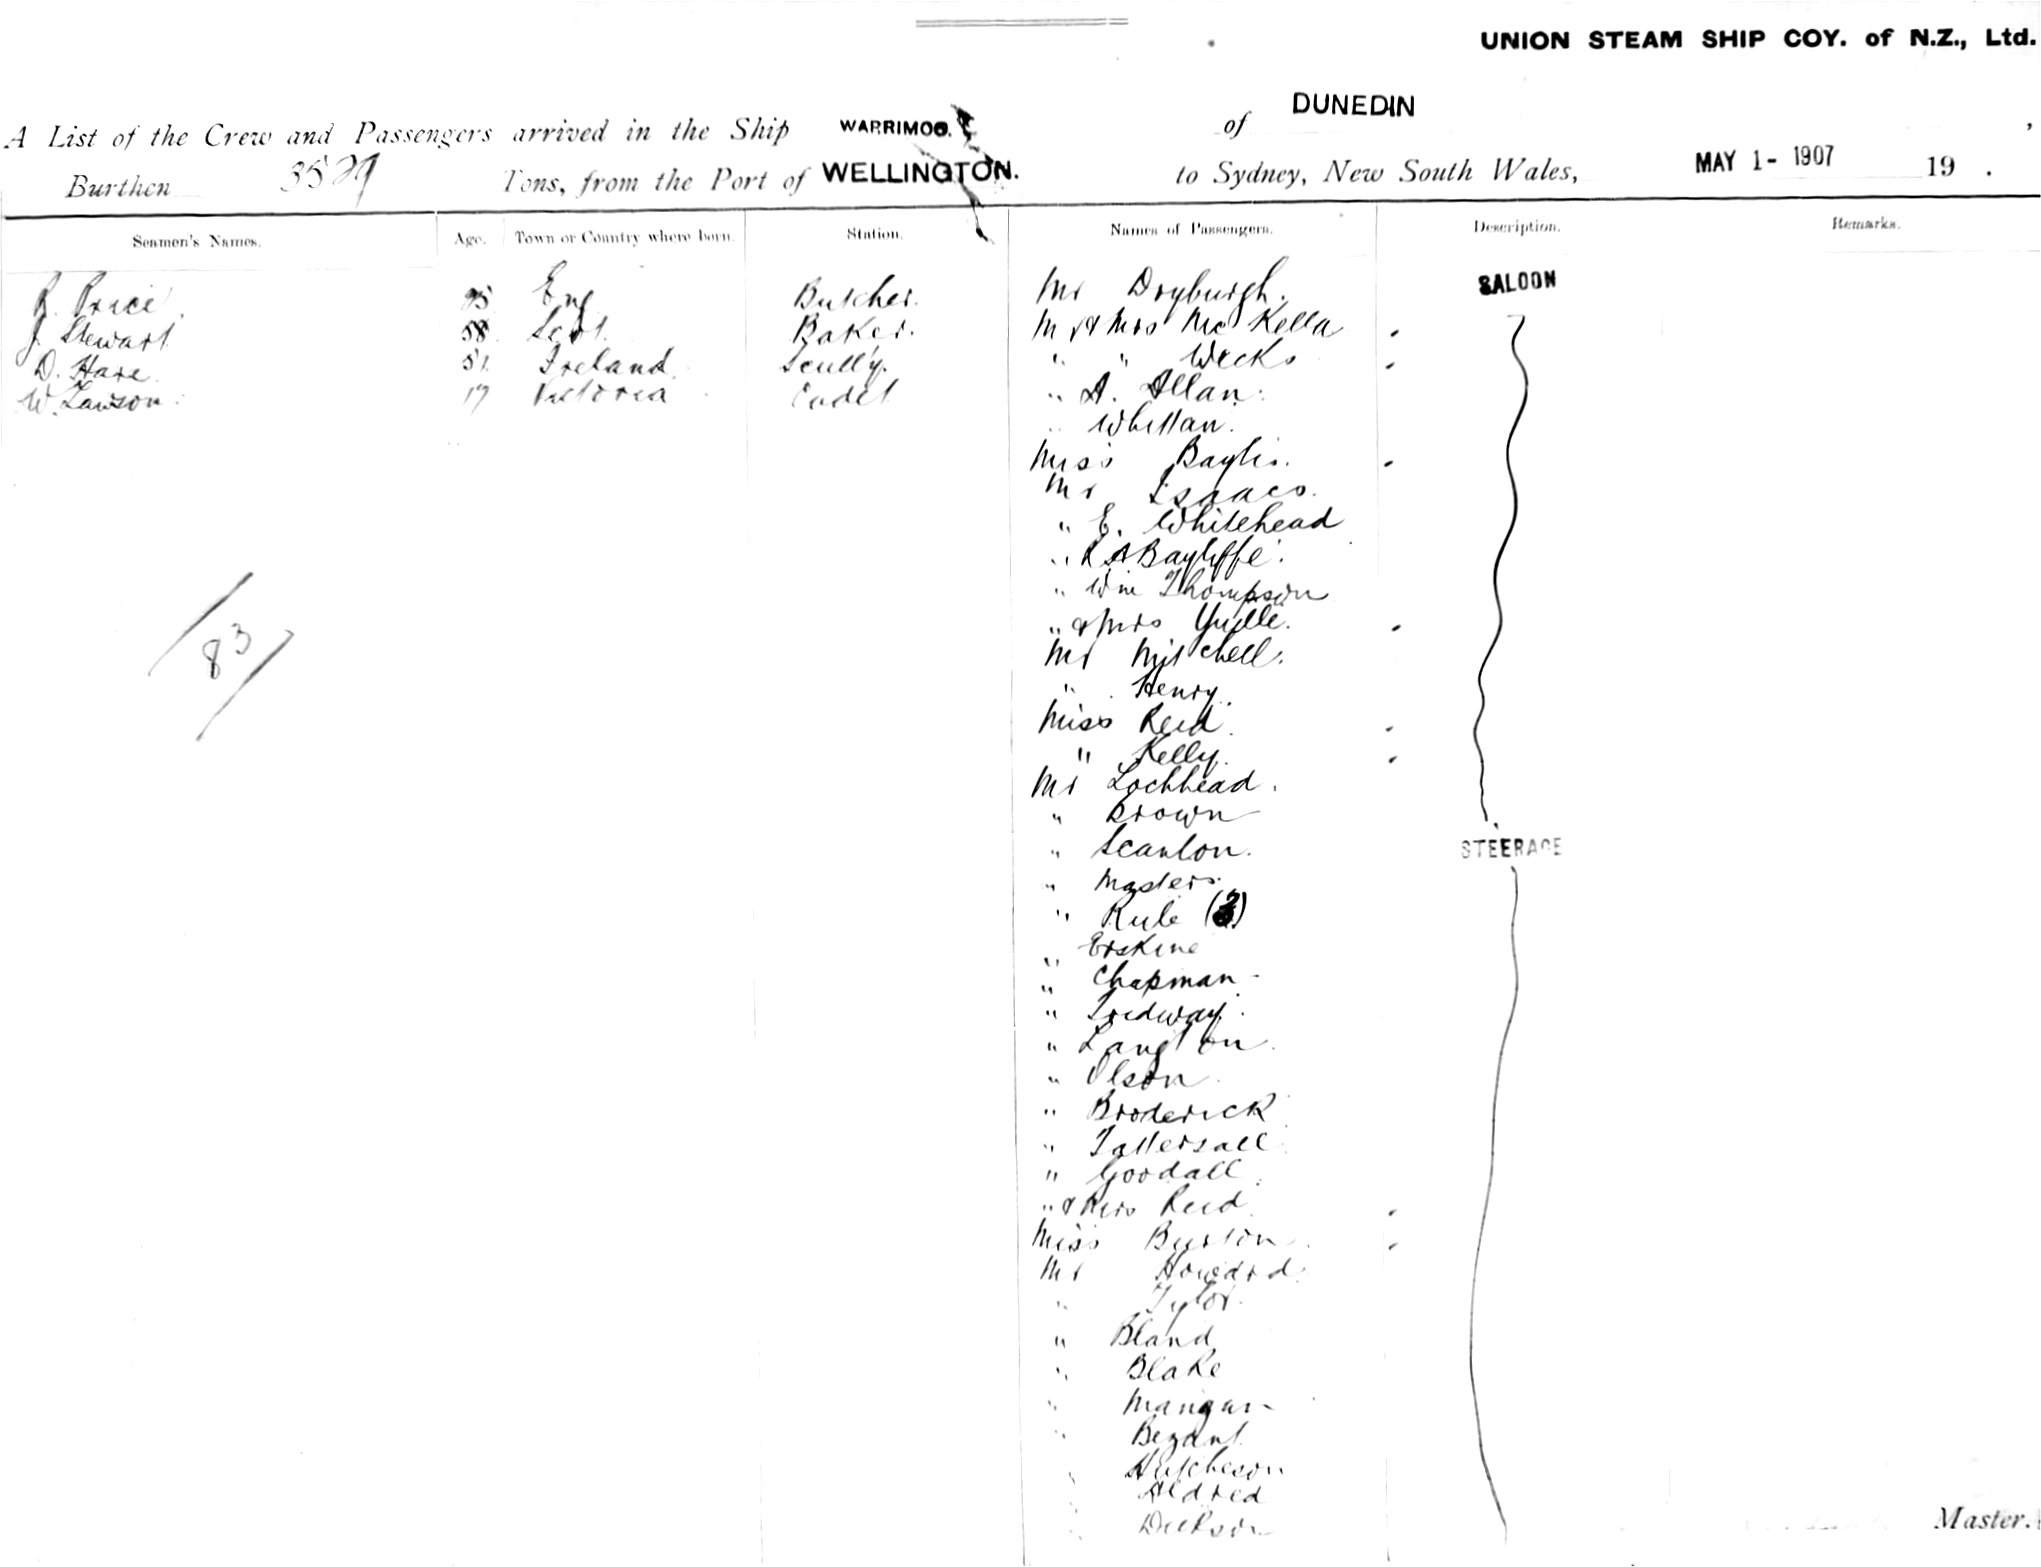 UNION STEAM SHIP COY. of N.Z., Ltd.
A List of the Crew and Passengers arrived in the Ship WARRIMOO. of DUNEDIN,
Burthen 3529 Tons, from the Port of WELLINGTON. to Sydney, New South Wales, MAY 1- 1907 19 .
Seamen's Names. Age. Town or Country where born. Station. Names of Passengers. Description. Remarks.
R. Price Eng Butcher.
J. Stewart 38 Scot. Baker.
D. Hare 51 Ireland Scull'y.
W. Lawson 17 Victoria Cadet
83
Mr Dryburgh. SALOON
Mr & Mrs McKella
" " Weeks
" A. Allan.
" Whittan.
Miss Baylis.
Mr Isaacs.
" E. Whitehead
" R A Bayliffe.
" Wm Thompson
" & Mrs Yuille.
Mr Mitchell.
" Henry.
Miss Reid.
" Kelly.
Mr Lochhead.
" Brown
" Scanlon. STEERAGE
" Masters.
" Rule (3)
" Erskine
" Chapman
" Tredway.
" Langton.
" Olson.
" Broderick
" Tattersall
" Goodall
" & Mrs Reid
Miss Burton
Mr Howard
" Tylor.
" Bland
" Blake
" Mangan
" Bezant
" Hutcheson
" Aldred
" Dickson
Master.